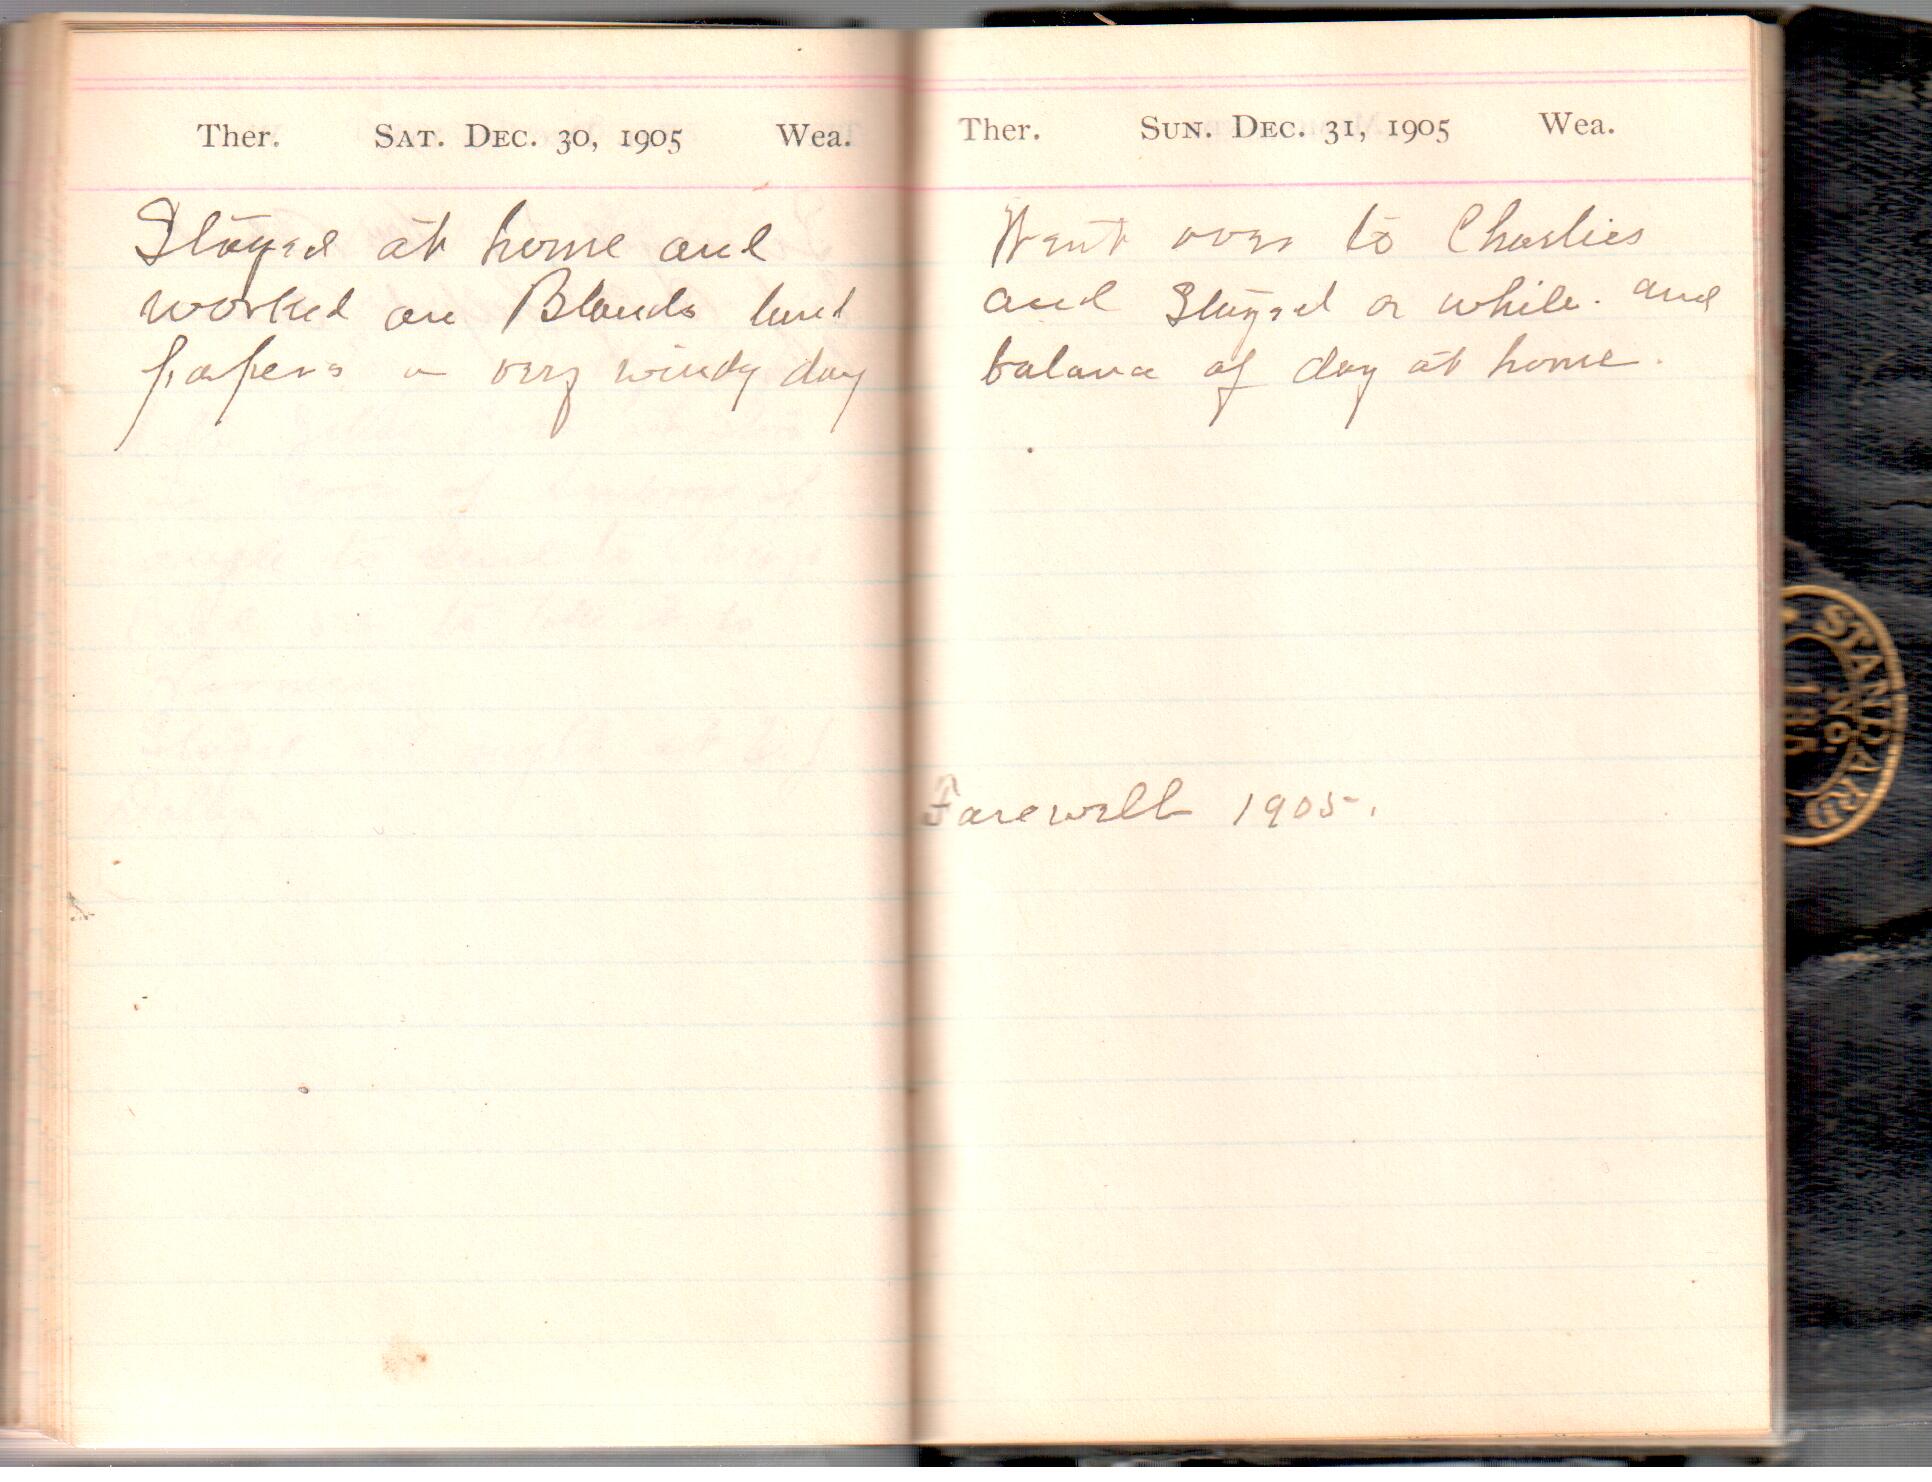 Ther. Sat. Dec. 30, 1905 Wea.
Stayed at home and
worked on Blands land
papers a very windy day
Ther. Sun. Dec. 31, 1905 Wea.
Went over to Charlies
and Stayed a while. and
balance of day at home.
Farewell 1905.
STANDARD
NO.